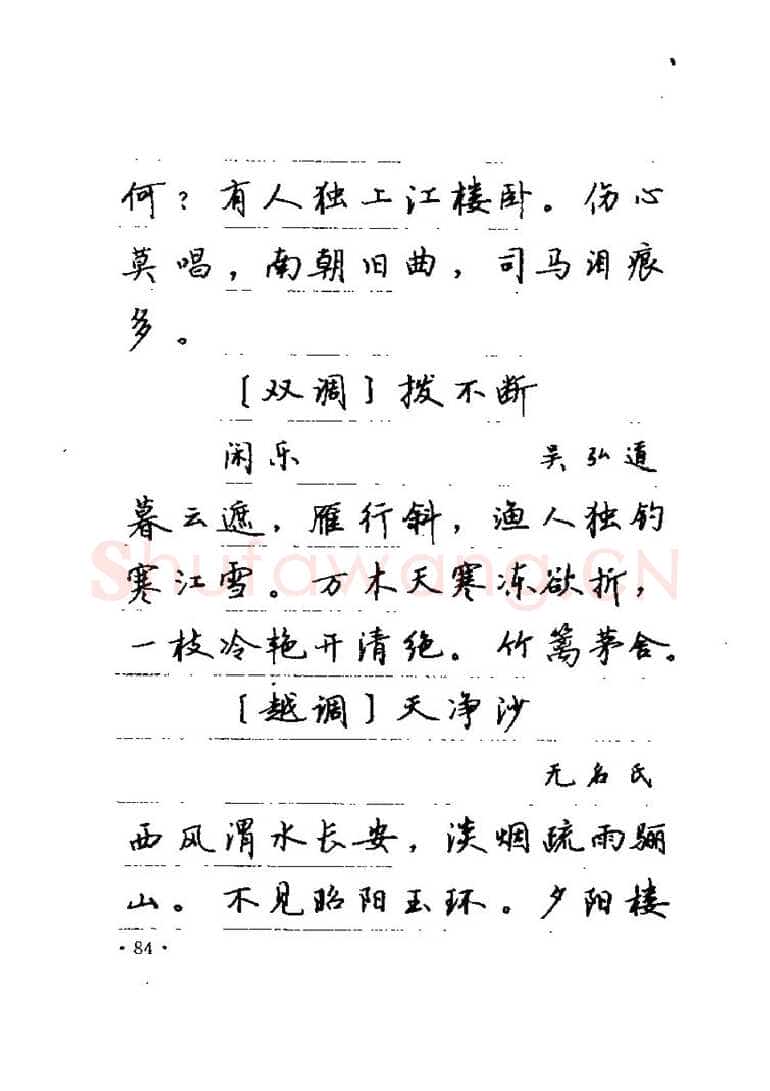 何？有人独上江楼卧。伤心
莫唱，南朝旧曲，司马泪痕
多。
［双调］拨不断
闲乐 吴弘道
暮云遮，雁行斜，渔人独钓
寒江雪。万木天寒冻欲折，
一枝冷艳开清绝。竹篱茅舍。
［越调］天净沙
无名氏
西风渭水长安，淡烟疏雨骊
山。不见昭阳玉环。夕阳楼
·84·
Shufawang.CN